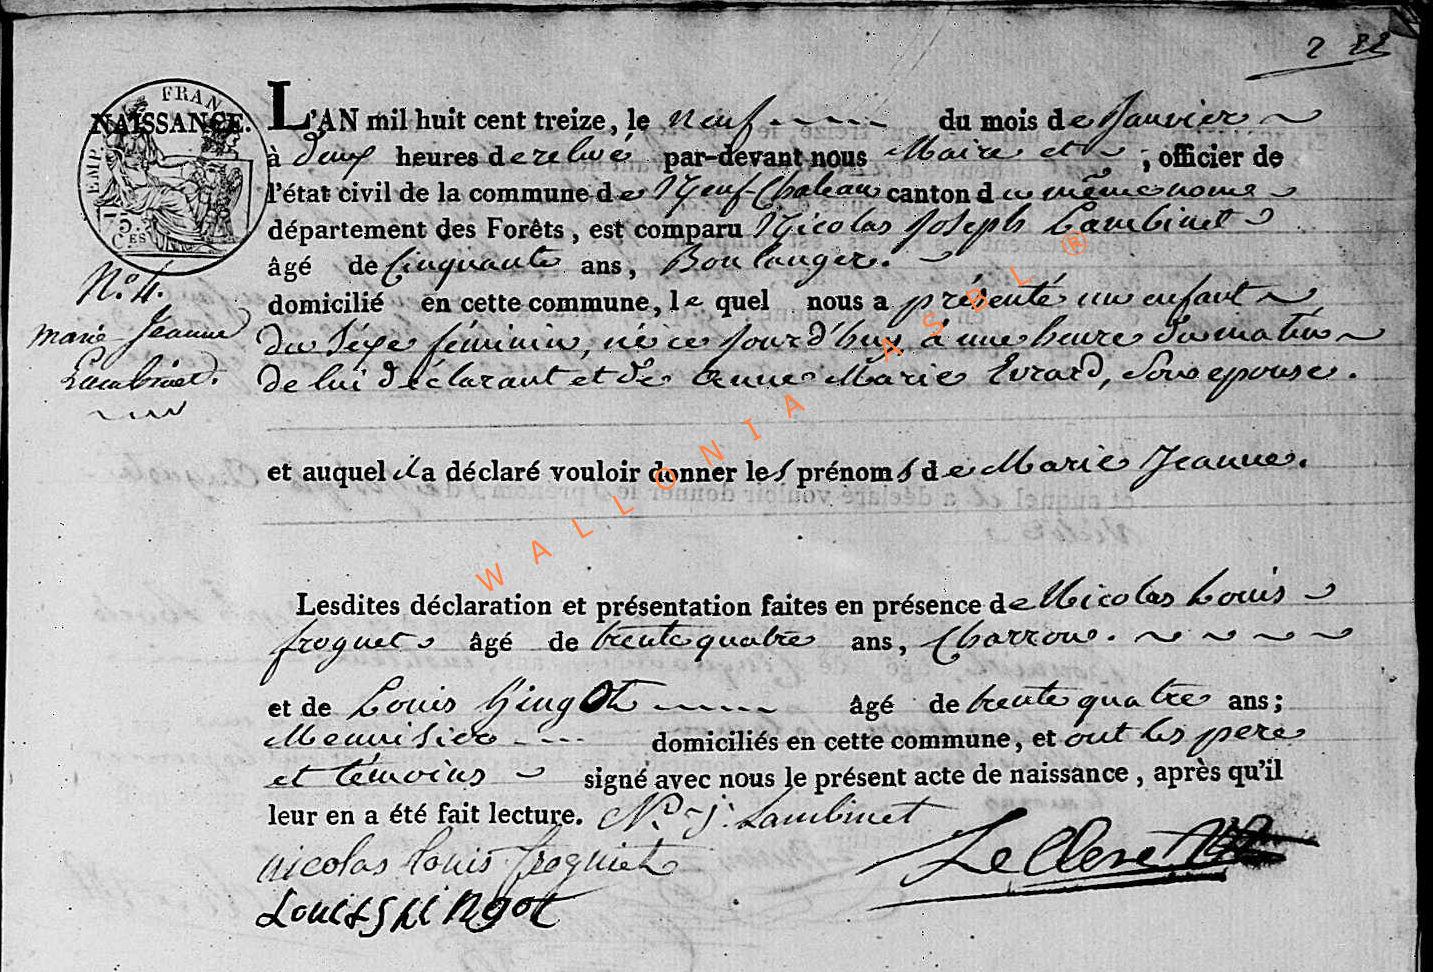 2
FRAN
EMP.
75
CES
NAISSANCE.
L'AN mil huit cent treize, le neuf du mois de Janvier
à deux heures de relevé par-devant nous Maire et, officier de
l'état civil de la commune de Neuf-Chateau canton du même nome
département des Forêts, est comparu Nicolas Joseph Lambinet
âgé de Cinquante ans, Boulanger.
domicilié en cette commune, le quel nous a présenté un enfant
du Séxe féminin, née ce jourd'huy à une heure du matin
de lui déclarant et de Anne Marie Evrard, Son epouse.
N.º 4.
Marie Jeanne
Lambinet.
et auquel il a déclaré vouloir donner les prénoms de Marie Jeanne.
Lesdites déclaration et présentation faites en présence de Nicolas Louis
froguet âgé de trente quatre ans, Charron.
et de Louis Gingot âgé de trente quatre ans;
Menuisier domiciliés en cette commune, et ont les pere
et témoins signé avec nous le présent acte de naissance, après qu'il
leur en a été fait lecture. N. J. Lambinet
nicolas louis froguiet
Le Clerc
Louis
WALLONIA ASBL ®